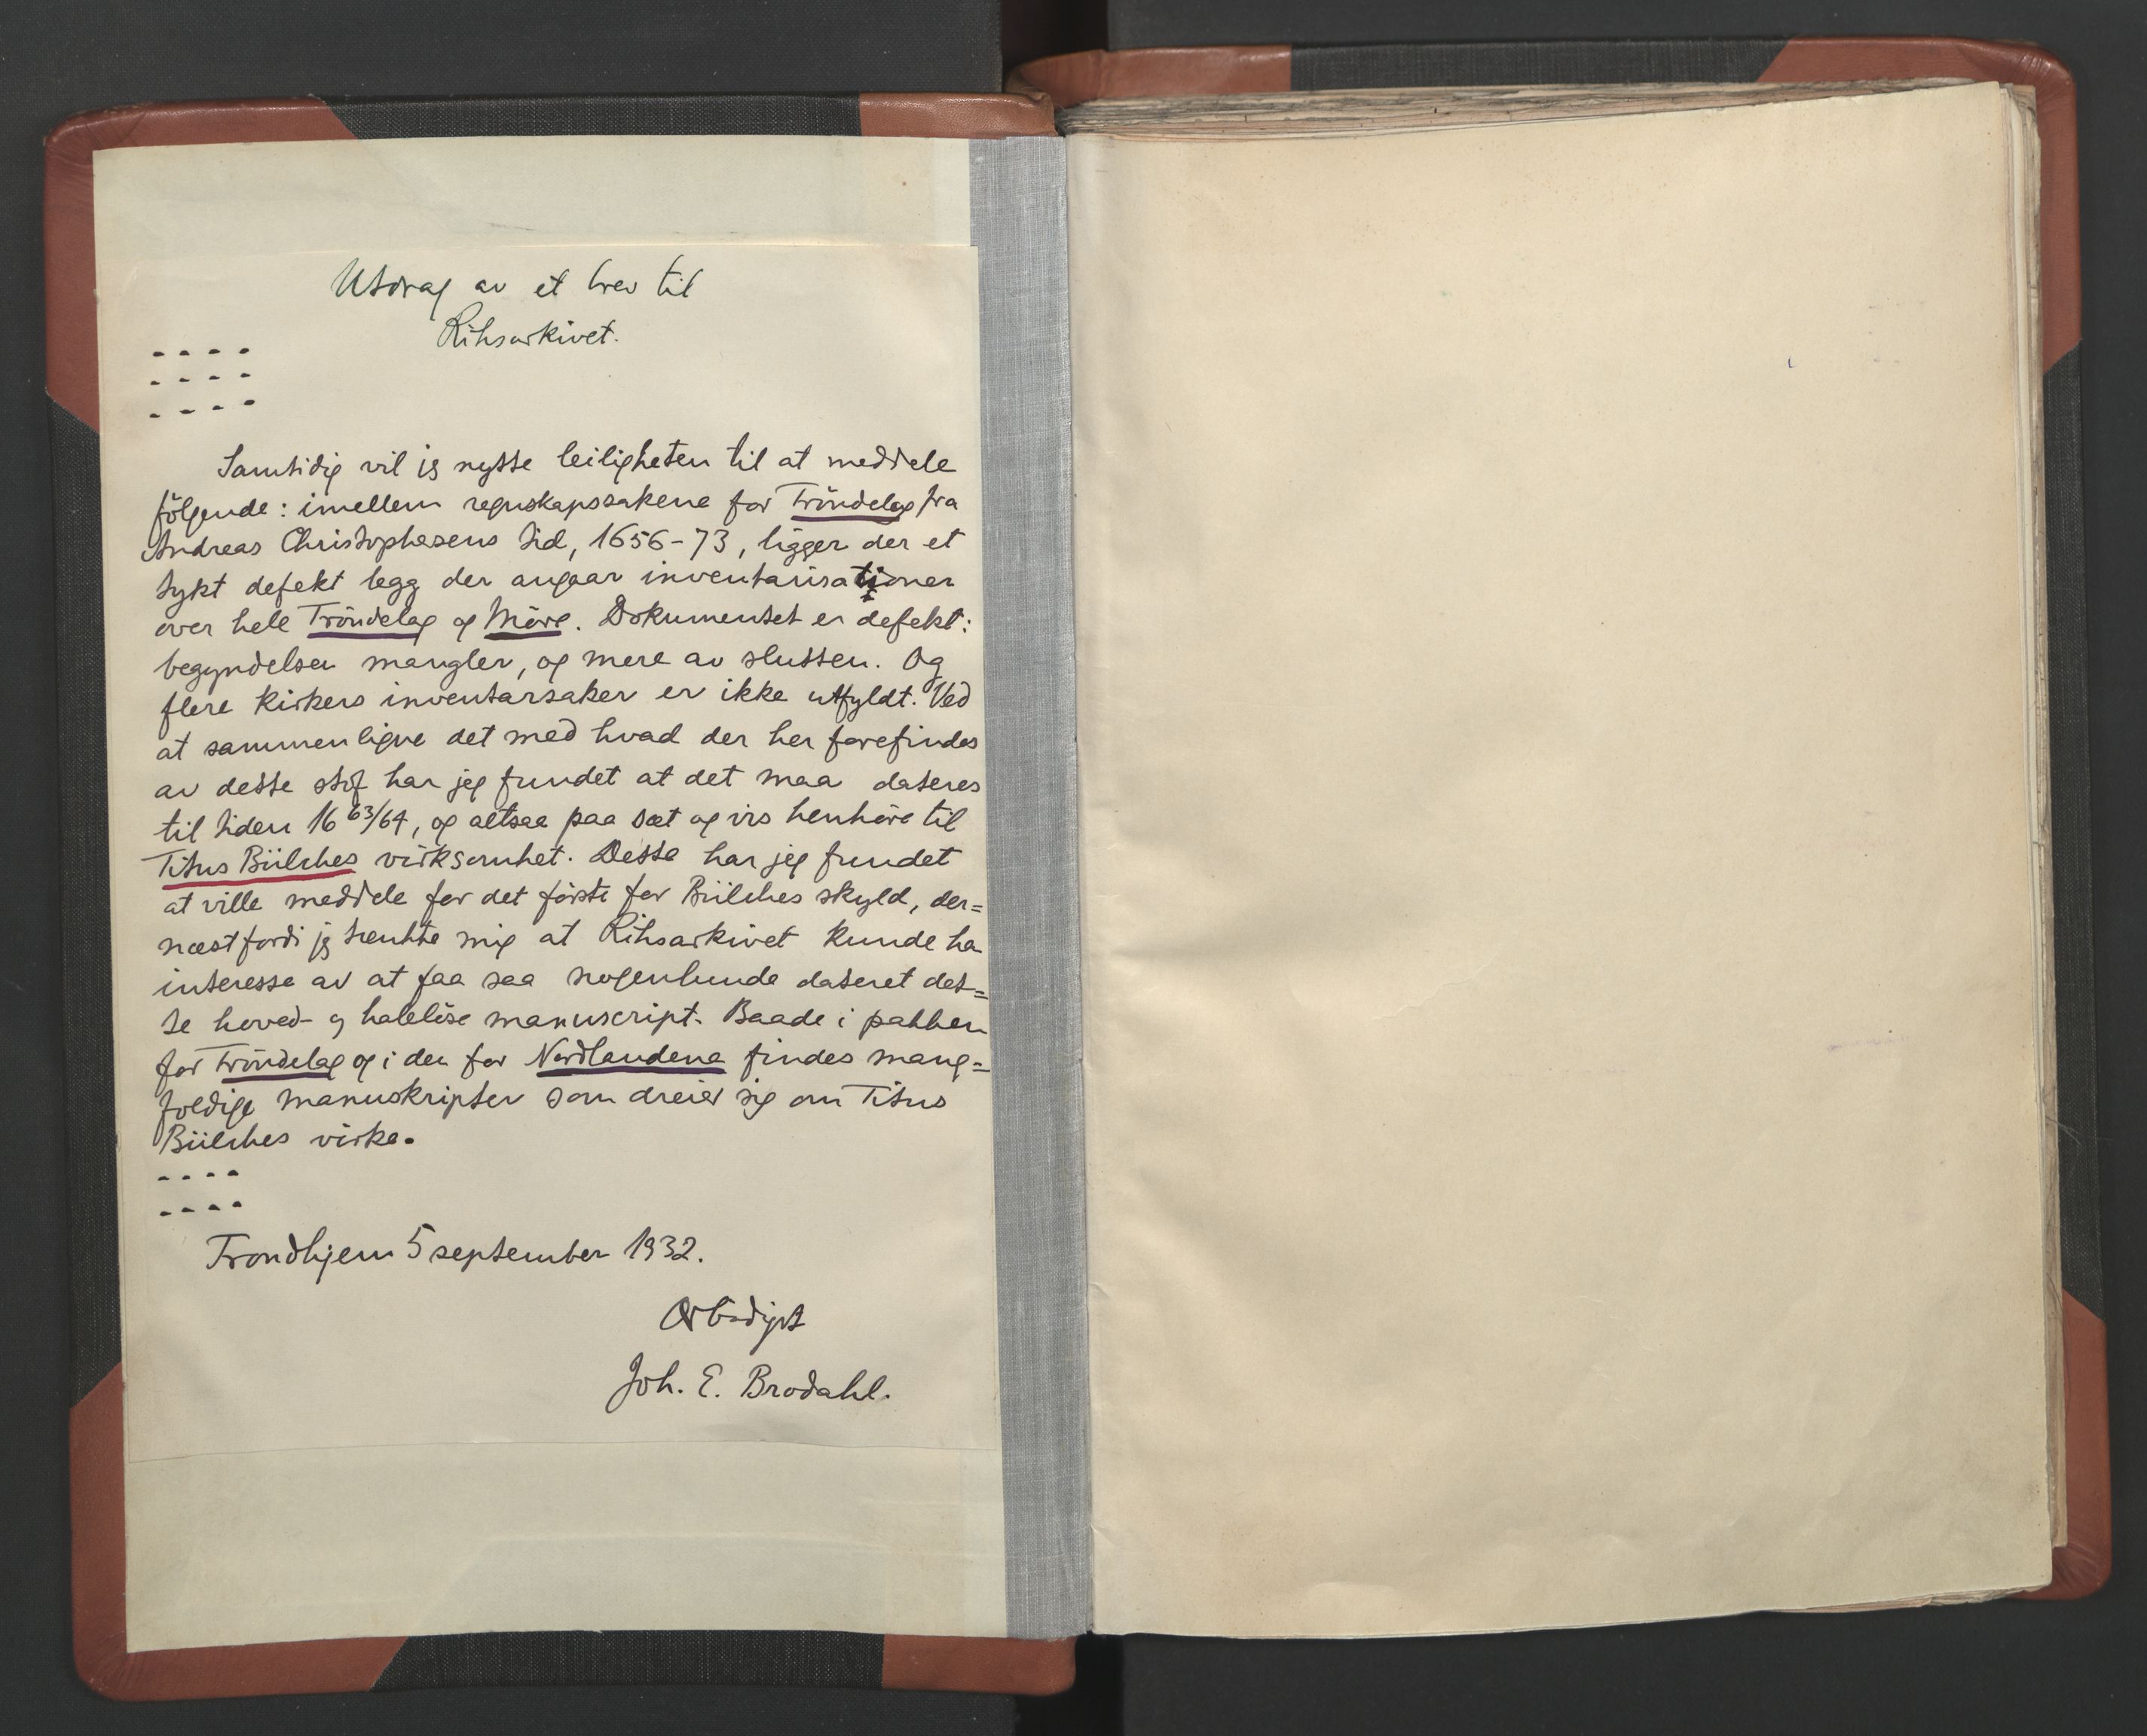 Utdrag av et brev til
Riksarkivet.
- - - -
- - - -
- - - -
Samtidig vil jg nytte leiligheten til at meddele
følgende: imellem regnskapssakene for Tröndelag fra
Andreas Christophesens tid, 1656-73, ligger der et
tykt defekt legg der angaar inventarisationer
over hele Tröndelag og Möre. Dokumentet er defekt:
begyndelsen mangler, og mere av slutten. Og
flere kirkers inventarsaker er ikke utfyldt. Ved
at sammenligne det med hvad der her forefindes
av dette stof har jeg fundet at det maa dateres
til tiden 16 63/64, og altsaa paa sæt og vis henhöre til
Titus Bülches virksomhet. Dette har jeg fundet
at ville meddele for det förste for Bülches skyld, der=
næst fordi jg tænkte mig at Riksarkivet kunde ha
interesse av at faa saa nogenlunde dateret det=
te hoved- og halelöse manuscript. Baade i pakken
for Tröndelag og i den for Nordlandene findes mang=
foldige manuskripter som dreier sig om Titus
Bülches virke.
- - - -
- - - -
Trondhjem 5 september 1932.
Ærbödigst
Joh. E. Brodahl.